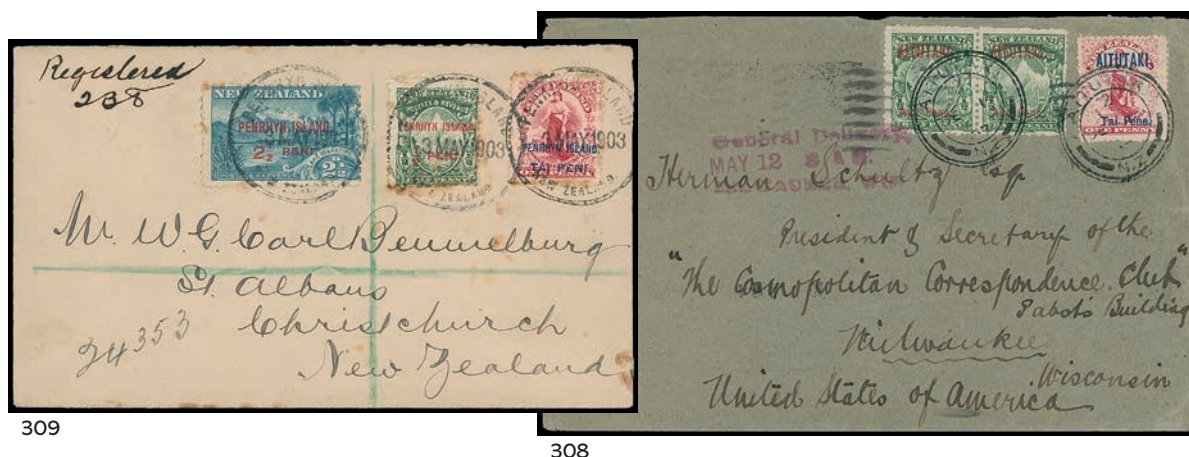 Registered
238
NEW ZEALAND
PENRHYN ISLAND.
2½ PENI.
PENRHYN ISLAND.
PENI.
3 MAY 1903
NEW ZEALAND
PENRHYN ISLAND.
TAI PENI.
ONE PENNY
MAY 1903
NEW ZEALAND.
Mr. W. G. Carl Bemmelburg
St. Albans
Christchurch
New Zealand
24353
309
NEW ZEALAND
AITUTAKI.
NEW ZEALAND
AITUTAKI.
AITUTAKI
N.Z
AITUTAKI.
Tai Pene.
ONE PENNY
AITUTAKI
N.Z
General Delivery
MAY 12 8 A M
Herman Schultz Esq
President & Secretary of the
"The Cosmopolitan Correspondence Club"
Pabst's Building
Milwaukee
Wisconsin
United States of America
308